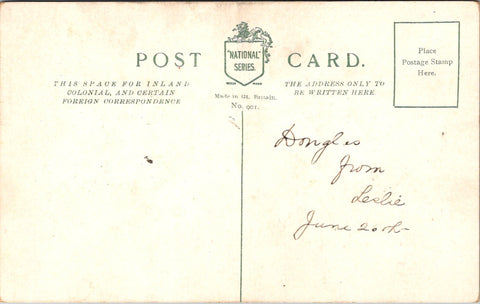 POST CARD.
"NATIONAL"
SERIES.
Made in Gt. Britain.
No. 901.
THIS SPACE FOR INLAND
COLONIAL, AND CERTAIN
FOREIGN CORRESPONDENCE
THE ADDRESS ONLY TO
BE WRITTEN HERE
Place
Postage Stamp
Here.
Douglas
from
Leslie
June 20th